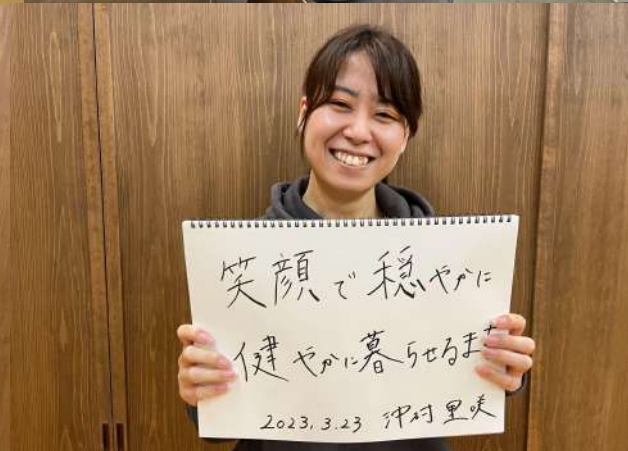 笑顔で穏やかに
健やかに暮らせるま
2023.3.23 沖村里咲